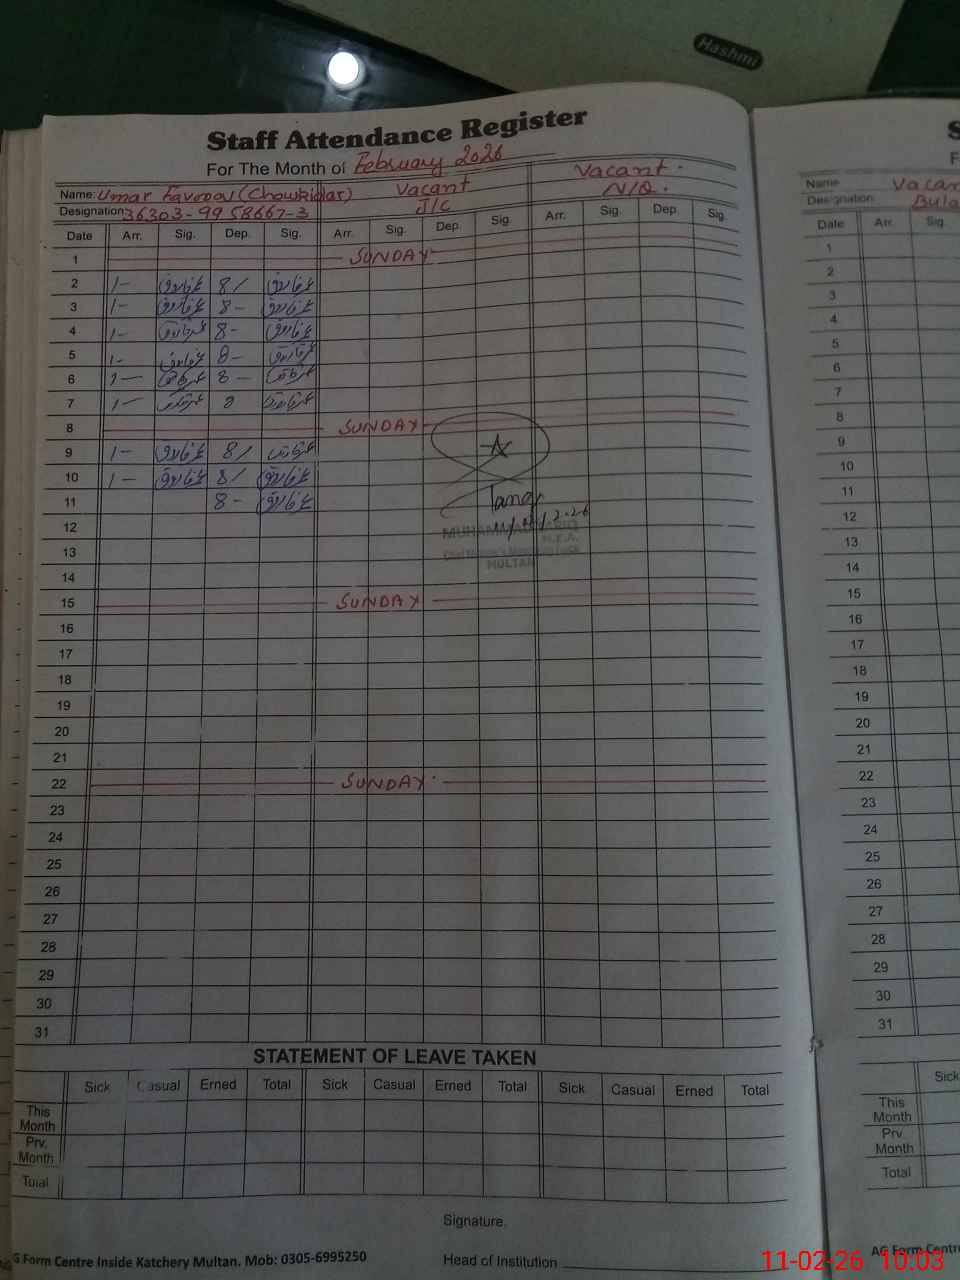 Hashmi
Staff Attendance Register
For The Month of February 2026
Name: Umar Farooq (Chowkidar) Vacant Vacant.
Designation 36303-9958667-3 J/C N/Q.
Date Arr. Sig. Dep. Sig. Arr. Sig. Dep. Sig. Arr. Sig. Dep. Sig.
1 SUNDAY
2 1- 8/
3 1- 8-
4 1- 8-
5 1- 8-
6 1- 8-
7 1- 8
8 SUNDAY
9 1- 8/
10 1- 8/
11 8-
12
MUHAMMAD TARIQ
M.E.A.
13
MULTAN
14
15 SUNDAY
16
17
18
19
20
21
22 SUNDAY
23
24
25
26
27
28
29
30
31
STATEMENT OF LEAVE TAKEN
Sick Casual Erned Total Sick Casual Erned Total Sick Casual Erned Total
This Month
Prv. Month
Total
Signature.
G Form Centre Inside Katchery Multan. Mob: 0305-6995250 Head of Institution
Name Vacan
Designation Bula
Date Arr. Sig.
1
2
3
4
5
6
7
8
9
10
11
12
13
14
15
16
17
18
19
20
21
22
23
24
25
26
27
28
29
30
31
Sick
This Month
Prv Month
Total
AG Form Centr
11-02-26 10:03